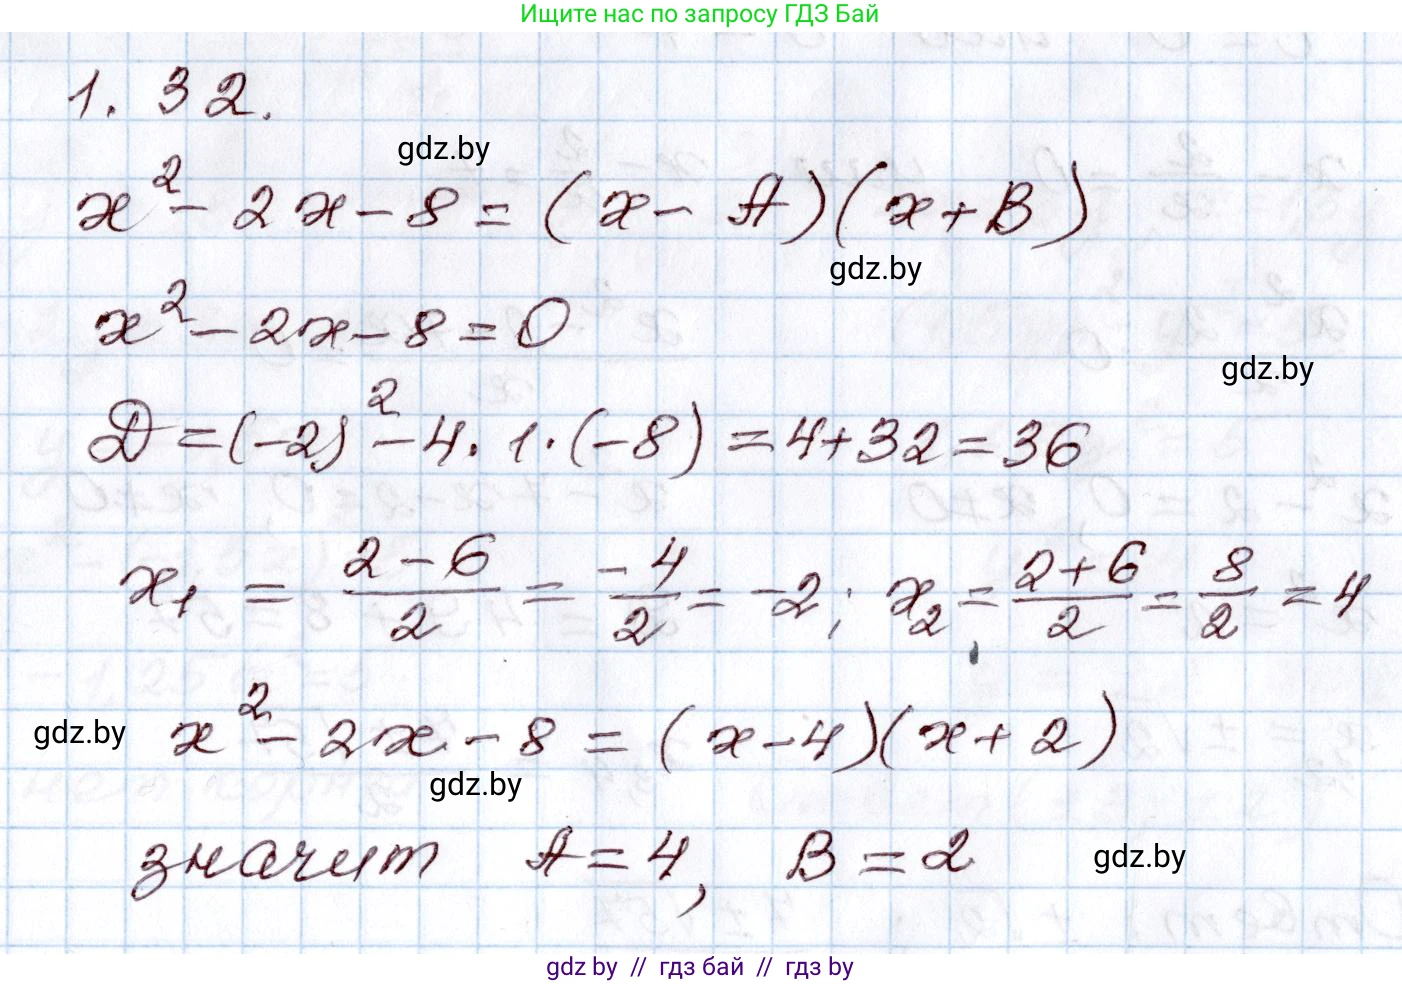 Ищите нас по запросу ГДЗ Бай
1. 32.
gdz.by
x² - 2x - 8 = (x - A)(x + B)
gdz.by
x² - 2x - 8 = 0
gdz.by
D = (-2)² - 4 · 1 · (-8) = 4 + 32 = 36
x₁ = (2 - 6)/2 = -4/2 = -2; x₂ = (2 + 6)/2 = 8/2 = 4
gdz.by x² - 2x - 8 = (x - 4)(x + 2)
gdz.by
значит A = 4, B = 2 gdz.by
gdz.by // гдз бай // гдз by